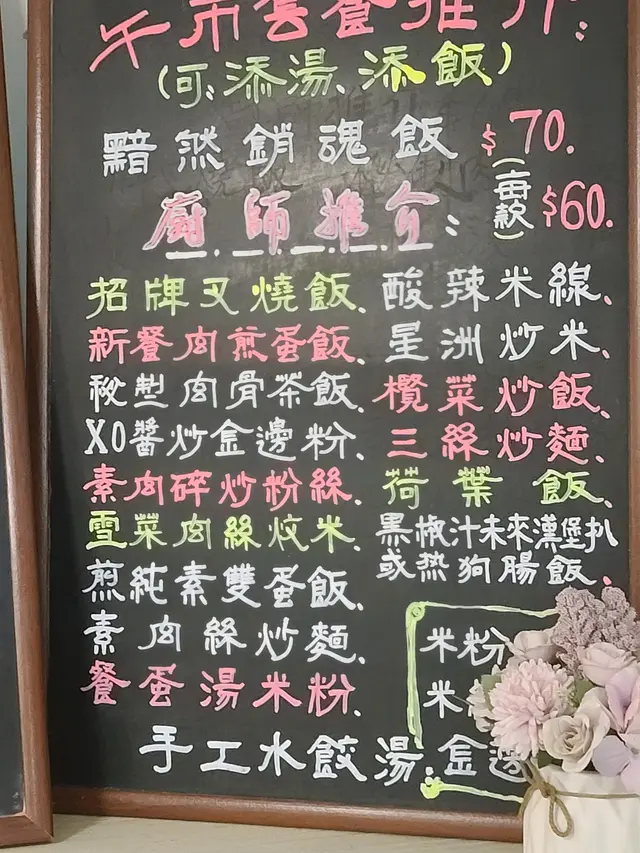 午市套餐推介:
(可添湯、添飯)
黯然銷魂飯 $70.
廚師推介: (每款) $60.
招牌叉燒飯、酸辣米線、
新餐肉煎蛋飯、星洲炒米、
秘製肉骨茶飯、欖菜炒飯、
XO醬炒金邊粉、三絲炒麵、
素肉碎炒粉絲、荷葉飯、
雪菜肉絲炆米、黑椒汁未來漢堡扒
煎純素雙蛋飯、或热狗腸飯、
素肉絲炒麵、
餐蛋湯米粉、
米粉
米
手工水餃湯:金邊